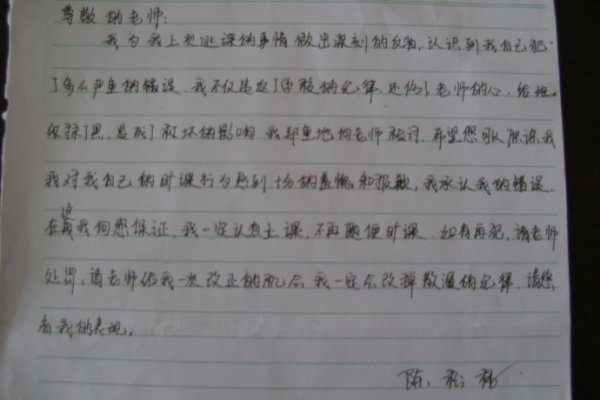 尊敬的老师:
我为我上次逃课的事情做出深刻的反省,认识到我自己犯
了多么严重的错误,我不仅违反了学校的纪律,还伤了老师的心,给班
级抹了黑,造成了很坏的影响,我郑重地向老师检讨,希望您可以原谅我
我对我自己的旷课行为感到十分的羞愧和抱歉,我承认我的错误,
在这我向您保证,我一定认真上课,不再随便旷课,如有再犯,请老师
处罚,请老师给我一次改正的机会,我一定会改掉散漫的纪律,请您
看我的表现。
陈